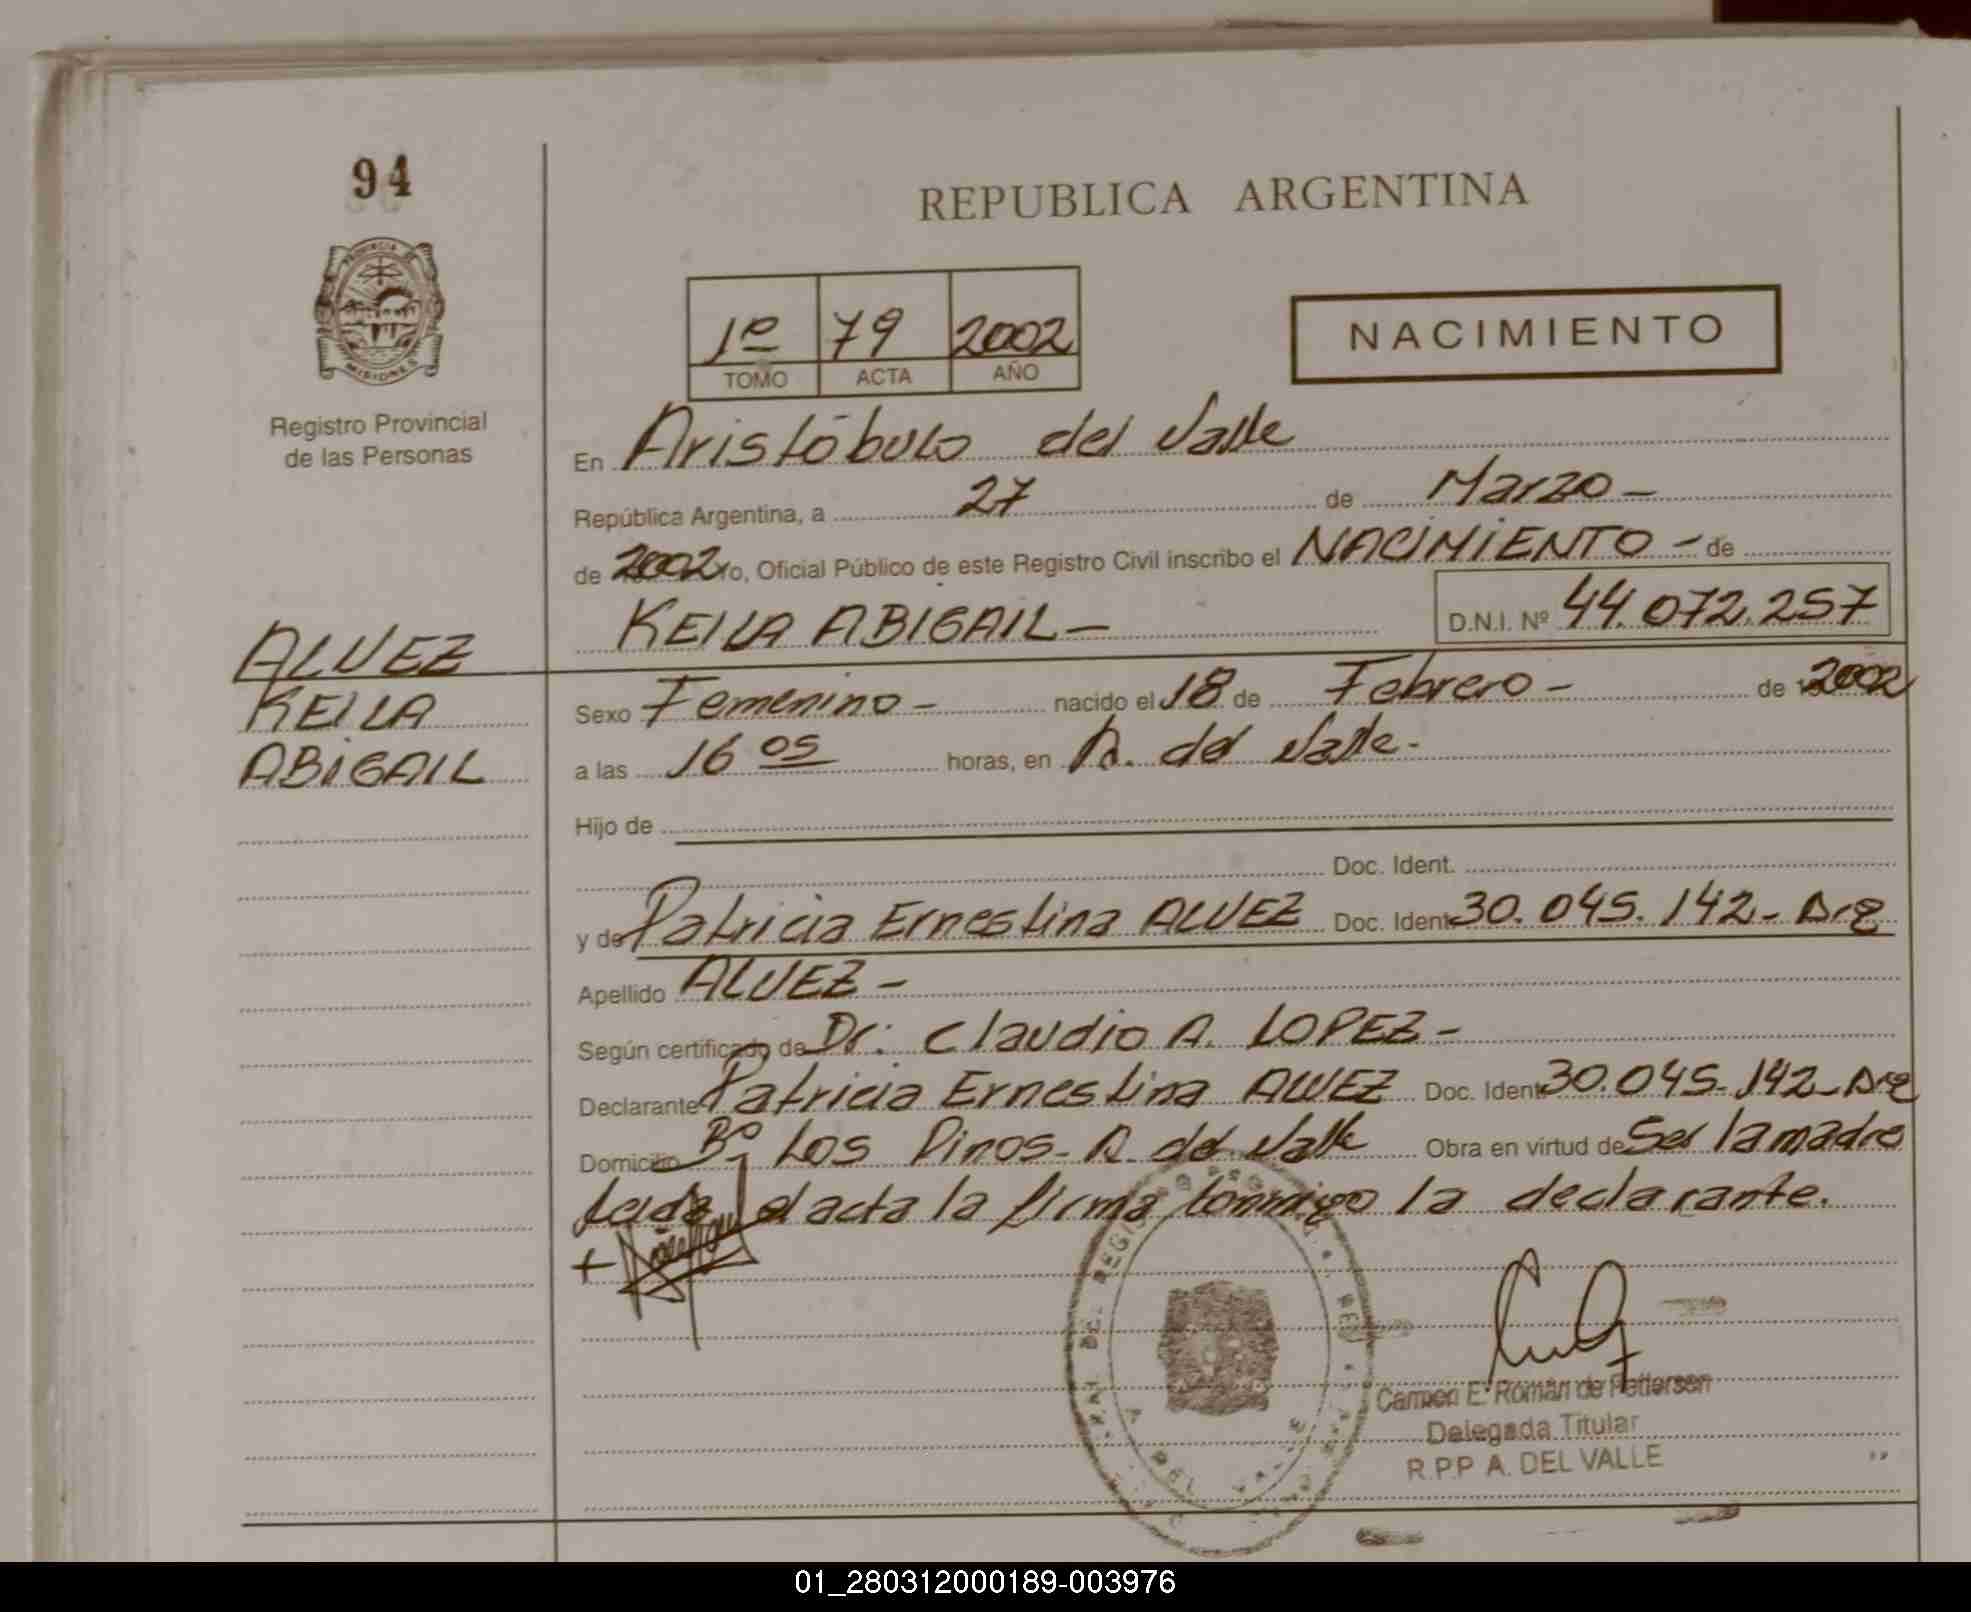 94
REPUBLICA ARGENTINA
PROVINCIA DE
MISIONES
Registro Provincial
de las Personas
1º 79 2002
TOMO ACTA AÑO
NACIMIENTO
En Aristóbulo del Valle
República Argentina, a 27 de Marzo -
de 2002 Yo, Oficial Público de este Registro Civil inscribo el NACIMIENTO - de
KEILA ABIGAIL - D.N.I. Nº 44.072.257
ALVEZ
KEILA
ABIGAIL
Sexo Femenino - nacido el 18 de Febrero - de 2002
a las 16 05 horas, en A. del Valle.
Hijo de
Doc. Ident.
y de Patricia Ernestina ALVEZ Doc. Ident. 30.045.142 - Arg
Apellido ALVEZ -
Según certificado de Dr: Claudio A. LOPEZ -
Declarante Patricia Ernestina ALVEZ Doc. Ident. 30.045.142 - Arg
Domicilio Bº Los Pinos - A. del Valle Obra en virtud de Ser la madre
Leida el acta la firma conmigo la declarante.
+
Carmen E. Román de Pettersen
Delegada Titular
R.P.P A. DEL VALLE
A DEL VALLE
01_280312000189-003976